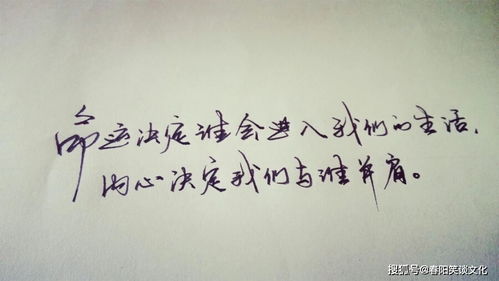 命运决定谁会进入我们的生活，
内心决定我们与谁并肩。
搜狐号@春阳笑谈文化